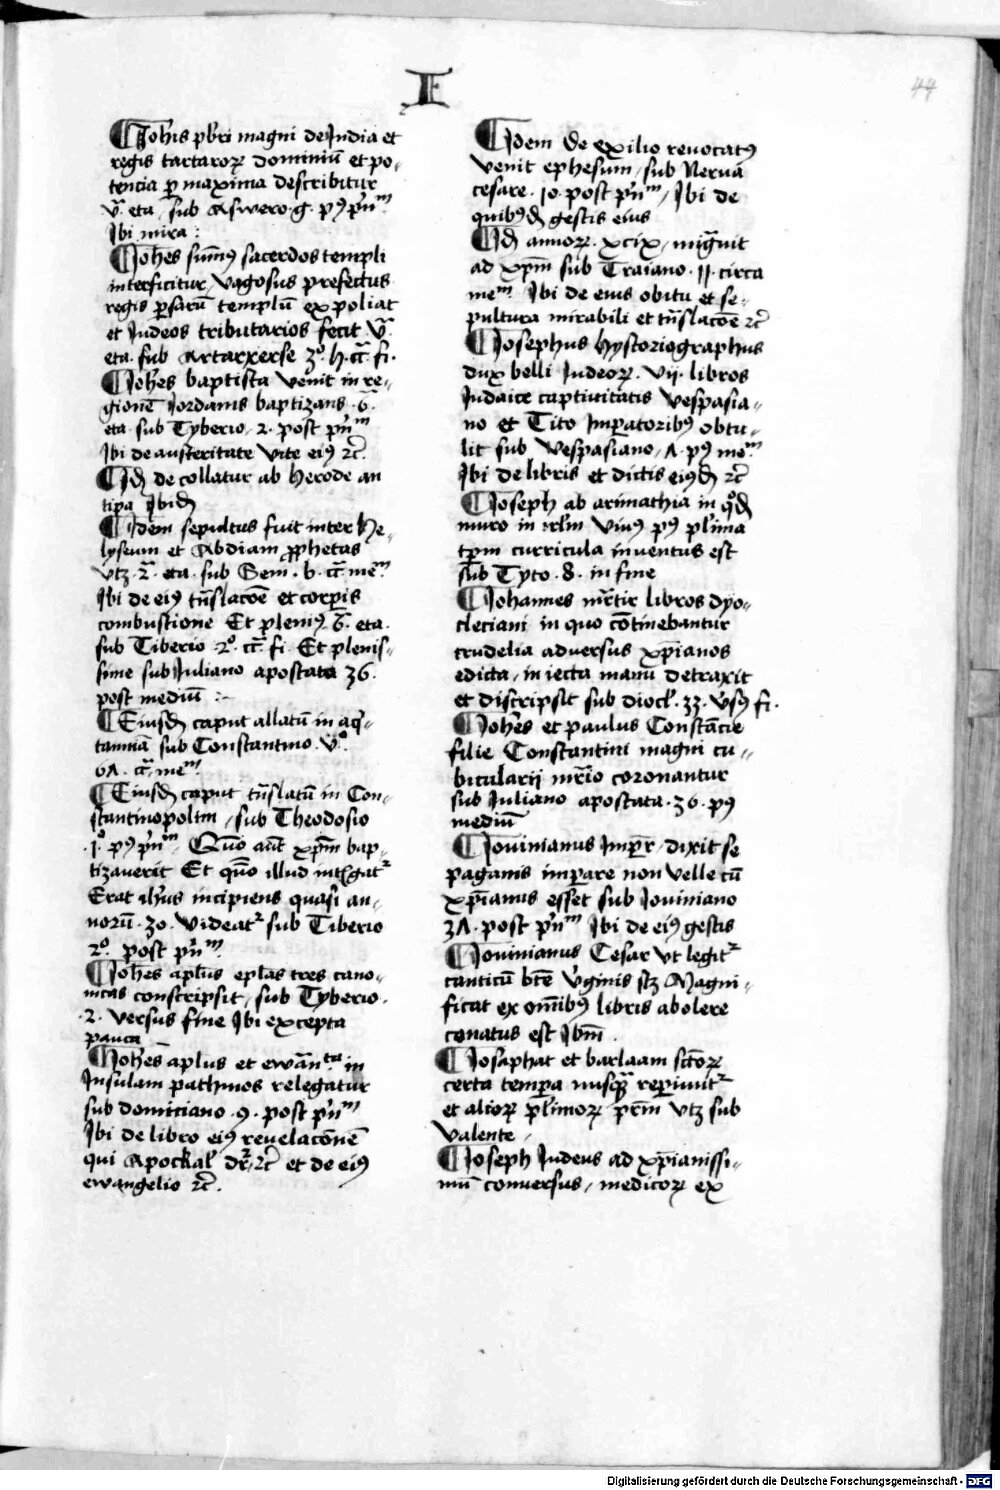 I
44
¶ Joh̄is pb̄ri magni de India et
regis tartaroꝝ dominiū et po-
tencia ꝑ maxima describitur
v̄ eta / sub Aswero .g. pꝰ pn̄m
Ibi mira :
¶ Joh̄es sūmꝰ sacerdos templi
interficitur / vagosus prefectus
regis ꝑsarū templū expoliat
et Judeos tributarios fecit v̄
eta . sub Artarxerse 3o . h. cc̄ fi .
¶ Joh̄es baptista venit in re-
gionē Jordanis baptizans . 6 .
eta . sub Tyberio . 2 . post pn̄m
Ibi de austeritate vite eiꝰ ⁊c̄
¶ Idē decollatur ab herode an
tipa Ibidē
¶ Idem sepultus fuit inter He-
lyseum et Abdiam ꝓphetas
vtz . 2 . eta . sub Sem . b . cc̄ mem
Ibi de eiꝰ tn̄slacōe et corꝑis
combustione Et pleniꝰ . 6 . eta .
sub Tiberio . 2o . cc̄ fi . Et plenis-
sime sub Juliano apostata 36 .
post mediū :~
¶ Eiusdē caput allatū in aq̄-
taniā sub Constantino . v̊ .
61 . cc̄ mem
¶ Eiusdē caput tn̄slatū in Con-
stantinopolim / sub Theodosio
. 1o pꝰ pn̄m . Quō aūt xp̄m bap-
tizauerit Et quō illud intl̄gatr
Erat ih̄us incipiens quasi an-
norū . 30 . videatr sub Tiberio
2o . post pn̄m
¶ Joh̄es apl̄us epl̄as tres cano-
nicas conscripsit / sub Tyberio .
. 2 . versus fine Ibi excepta
pauca
¶ Joh̄es aplus et ewān̄ta in
Insulam pathmos relegatur
sub domiciano . 9 . post pn̄m
Ibi de libro eiꝰ reuelacōnē
qui Apockal' dr̄ ⁊c̄ et de eiꝰ
ewangelio ⁊c̄ .
¶ Idem de exilio reuocatꝰ
venit ephesum / sub Nerua
cesare . 10 . post pn̄m / Ibi de
quibꝰdā gestis eius
¶ Idē annoꝝ . xcix / migūit
ad xp̄m sub Traiano . 11 . circa
mem Ibi de eius obitu et se-
pultura mirabili et tn̄slacōe ⁊c̄
¶ Josephus hystoriographus
dux belli Judeoꝝ . vij . libros
Judaice captiuitatis vespasia-
no et Tito Imꝑatoribꝰ obtu-
lit sub vespasiano / 1 . pꝰ mem
Ibi de libris et dictis eiꝰdē ⁊c̄
¶ Joseph ab arimathia in qōdā
muro in irl̄m viuꝰ pꝰ pl̄ima
tp̄m curricula inuentus est
sub Tyto . 8 . in fine
¶ Johannes mr̄tir libros dyo-
cleciani in quo cōtinebantur
crudelia aduersus xp̄ianos
edicta / iniecta manu detraxit
et discripsit sub diocl' . 33 . v̄sꝰ fi .
¶ Joh̄es et paulus Constācie
filie Constantini magni cu-
bicularij mr̄io coronantur
sub Juliano apostata . 36 . pꝰ
mediū
¶ Jouinianus Imꝑr̄ . dixit se
paganis imꝑare non velle cū
xp̄ianus esset sub Jouiniano
31 . post pn̄m Ibi de eiꝰ gestis
¶ Jouinianus Cesar vt legitr
canticū bt̄e v̄ginis sꝫ Magni-
ficat ex om̄ibꝰ libris abolere
conatus est Ibm̄ .
¶ Josaphat et barlaam sc̄oꝝ
certa tempa nusq̄ꝫ reperiuntr
et alioꝝ pl̄imoꝝ pr̄m vtz sub
valente /
¶ Joseph Judeus ad xp̄ianissi-
mū conuersus / medicoꝝ ex
Digitalisierung gefördert durch die Deutsche Forschungsgemeinschaft - DFG